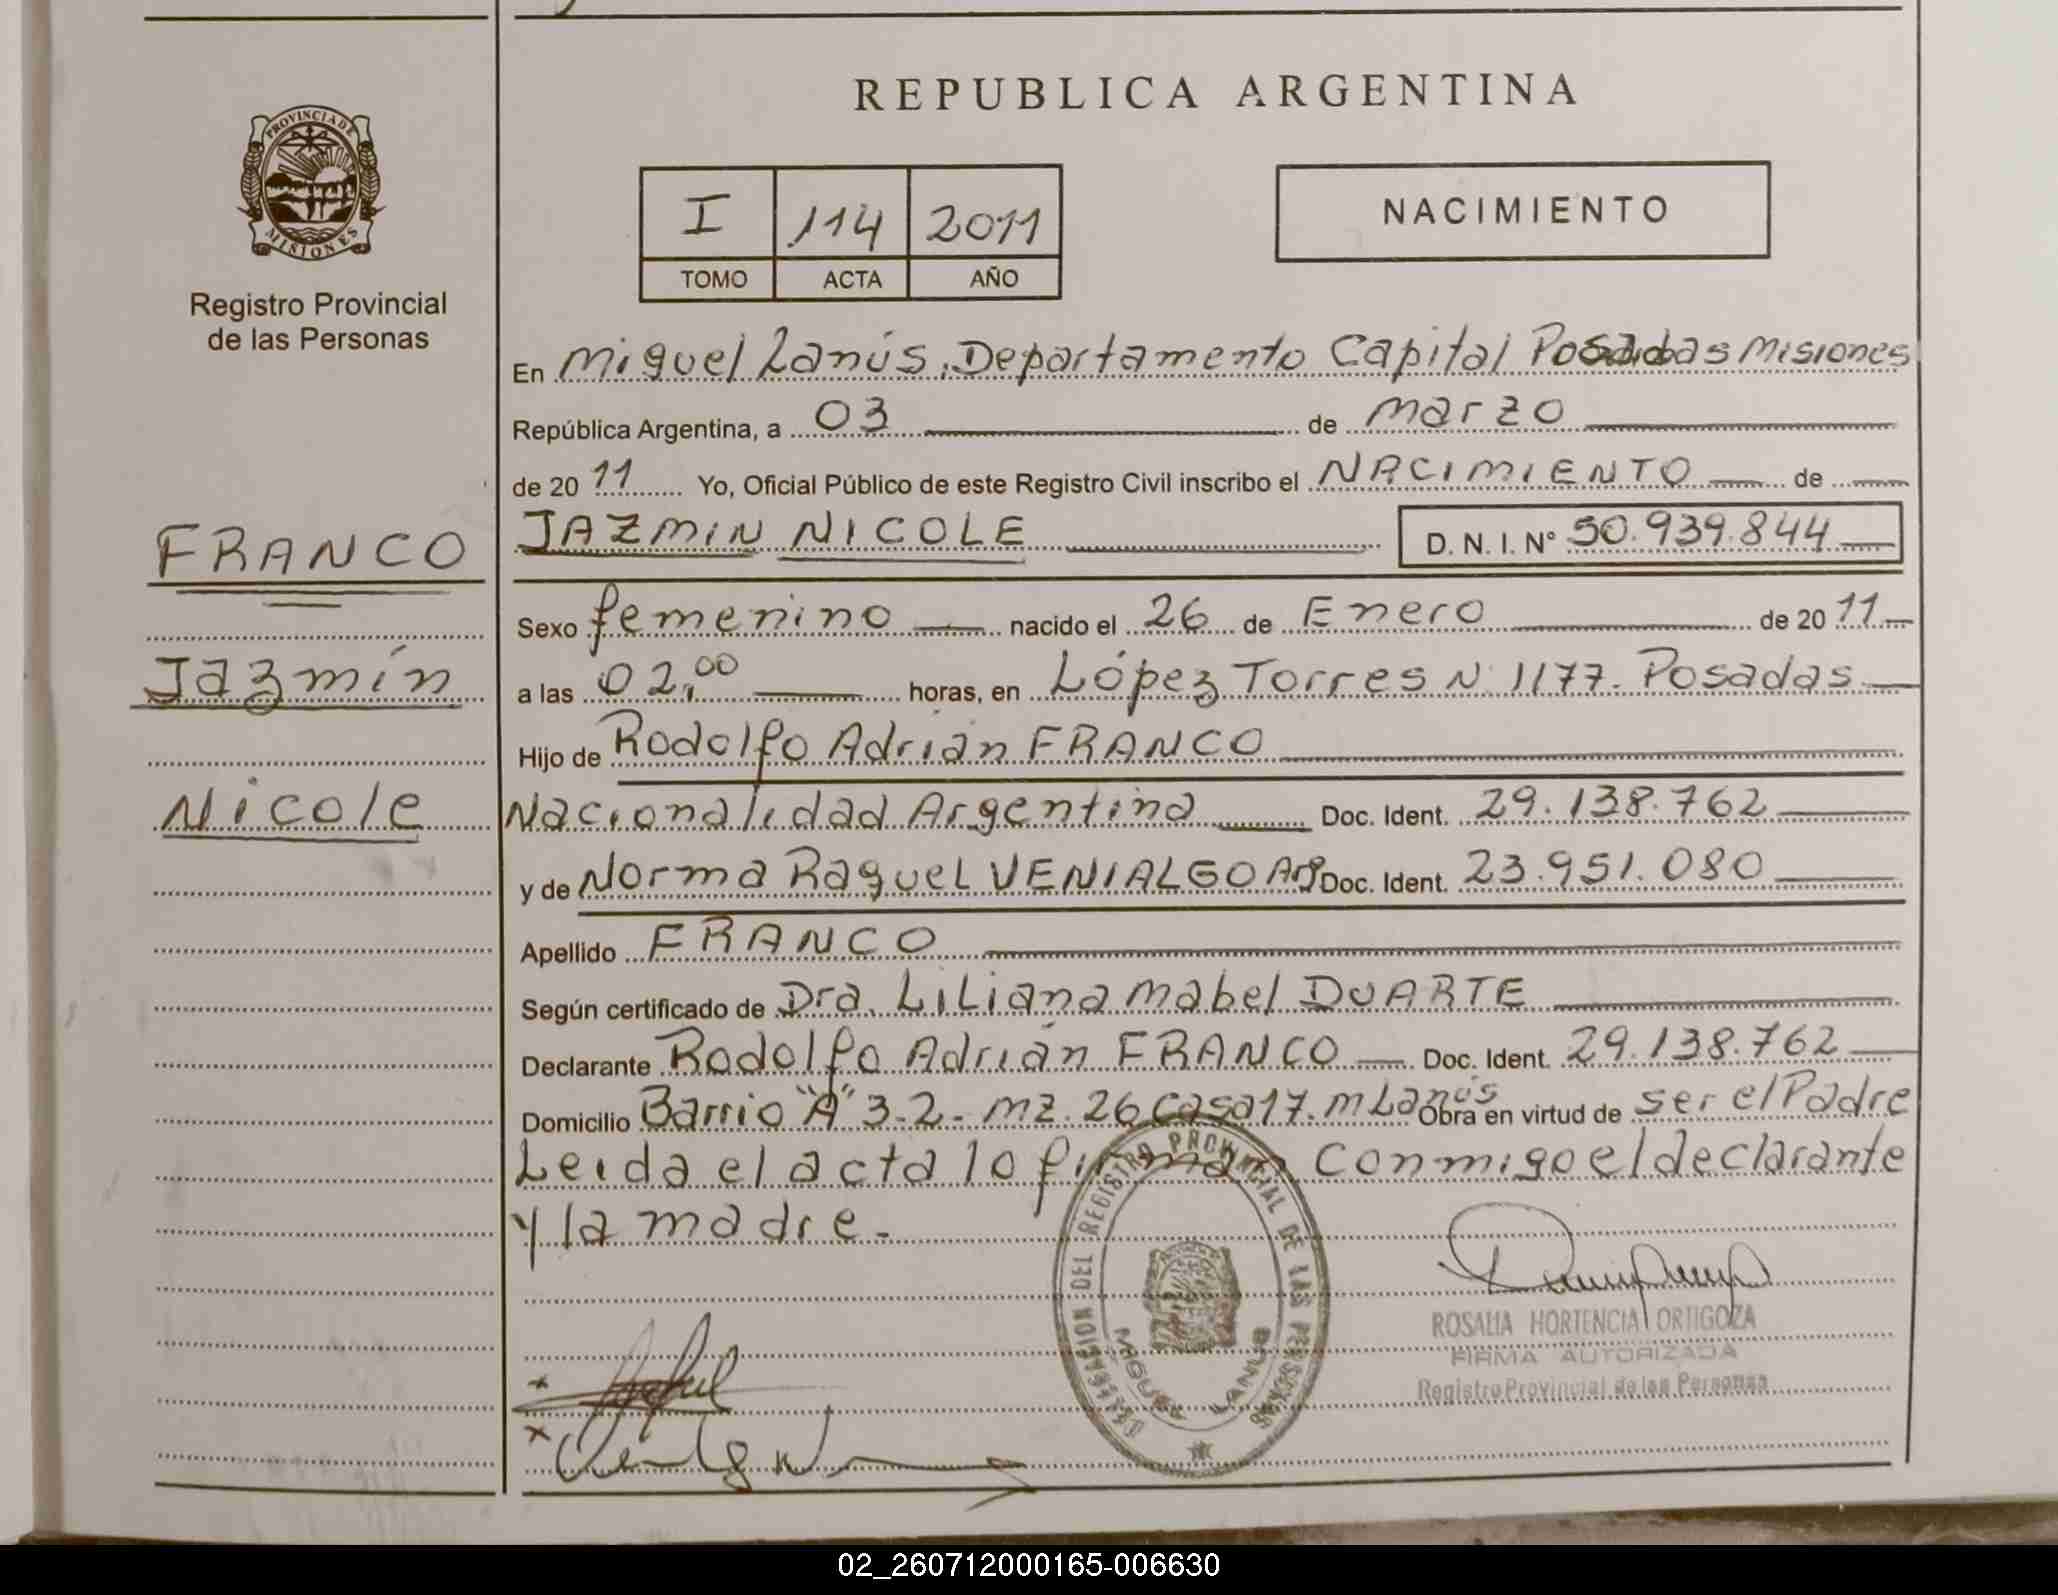 REPUBLICA ARGENTINA
PROVINCIA DE
MISIONES
Registro Provincial
de las Personas
I 114 2011
TOMO ACTA AÑO
NACIMIENTO
En Miguel Lanús, Departamento Capital Posadas Misiones
República Argentina, a 03 de marzo
de 2011 Yo, Oficial Público de este Registro Civil inscribo el NACIMIENTO de
JAZMIN NICOLE D. N. I. Nº 50.939.844
FRANCO
Jazmín
Nicole
Sexo femenino nacido el 26 de Enero de 2011
a las 02,00 horas, en López Torres N 1177. Posadas
Hijo de Rodolfo Adrián FRANCO
Nacionalidad Argentina Doc. Ident. 29.138.762
y de Norma Raquel VENIALGO Arg Doc. Ident. 23.951.080
Apellido FRANCO
Según certificado de Dra. Liliana Mabel DUARTE
Declarante Rodolfo Adrián FRANCO Doc. Ident. 29.138.762
Domicilio Barrio "A" 3-2- mz. 26 Casa 17. M Lanús Obra en virtud de ser el Padre
Leida el acta lo firman conmigo el declarante
y la madre.-
DELEGACION DEL REGISTRO PROVINCIAL DE LAS PERSONAS
MIGUEL LANUS
ROSALIA HORTENCIA ORTIGOZA
FIRMA AUTORIZADA
Registro Provincial de las Personas
02_260712000165-006630